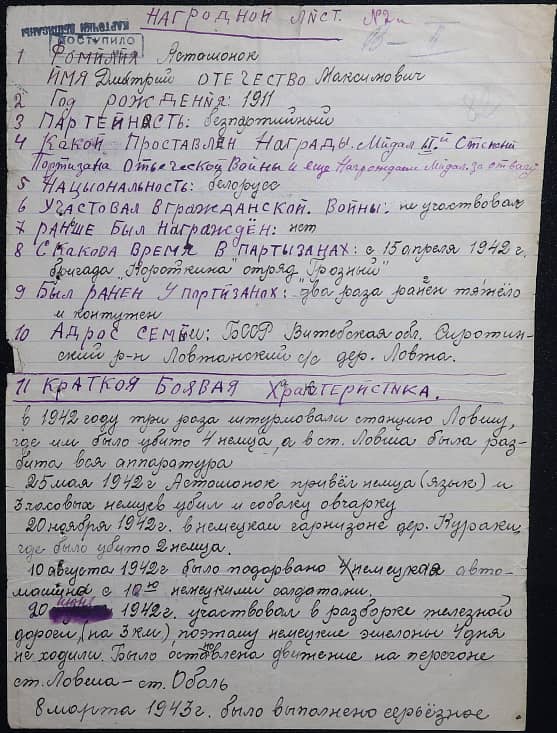 НАГРАДНОЙ ЛИСТ. №2
КАРТОЧКИ ВЫПИСАНЫ
ПОСТУПИЛО
1 ФОМИЛИЯ Асташонок
ИМЯ Дмитрий ОТЕЧЕСТВО Максимович
2 Год РОЖДЕНИЯ: 1911
3 ПАРТЕЙНОСТЬ: безпартийный
4 КАКОЙ ПРОСТАВЛЕН НАГРАДЫ. Мидал II й Степени
Портизана Отьеческой Войны и еще Награждаем Мидал. За отвагу
5 НАЦЫОНАЛЬНОСТЬ: белорусс
6 УЧАСТОВАЛ В ГРАЖДАНСКОЙ. ВОЙНЫ: не участвовал
7 РАНЬШЕ БЫЛ НАГРАЖДЁН: нет
8 С КАКОВА ВРЕМЯ В ПАРТЫЗАНАХ: с 15 апреля 1942 г.
бригада "Короткина" отряд "Грозный"
9 БЫЛ РАНЕН У ПОРТИЗАНОХ: два раза ранен тяжело
и контужен
10 АДРОС СЕМЬИ: БССР Витебская обл. Сиротин-
ский р-н Ловжанский с/с дер. Ловжа.
11 КРАТКОЯ БОЯВАЯ ХРАКТЕРИСТИКА.
в 1942 году три раза штурмовали станцию Ловшу,
где им было убито 4 немца, а в ст. Ловша была раз-
бита вся аппаратура
25 мая 1942 г Асташонок привёл немца (язык) и
3 часовых немцев убил и собаку овчарку
20 ноября 1942 г. в немецкам гарнизоне дер. Кураки,
где было убито 2 немца.
10 августа 1942 г было подорвано немецкая авто-
машина с 10ю немецкими солдатами.
20 1942 г. участвовал в разборке железной
дороги (на 3 км) поэтаму немецкие эшелоны 4 дня
не ходили. Было остановлена движение на перегоне
ст. Ловша – ст. Оболь
8 марта 1943 г. было выполнено серьёзное